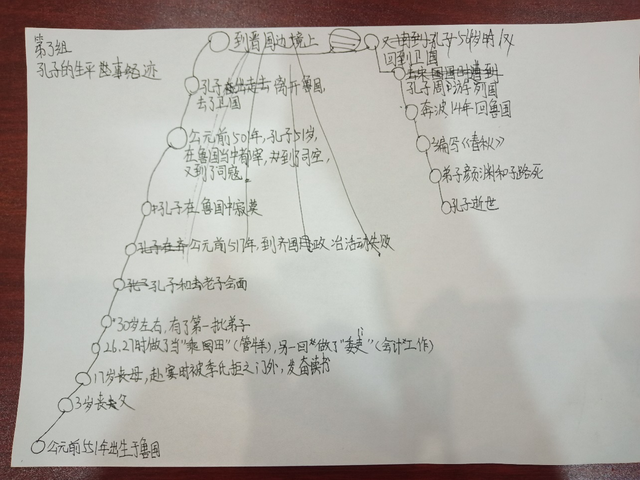 第3组
孔子的生平故事经迹
到晋国边境上
又由到孔子56岁时又
回到卫国
孔子出走去离开鲁国,
去了卫国
孔子周游列国
奔波14年回鲁国
公元前501年,孔子51岁,
在鲁国当中都宰,升到了司空,
又到了司寇.
编写《春秋》
弟子颜渊和子路死
孔子在鲁国中
孔子逝世
孔子在齐公元前517年,到齐国政治活动失败
孔子和去老子会面
30岁左右,有了第一批弟子
26.27时做了当“乘田”(管牲),另一回做了“委吏”(会计工作)
17岁丧母,赴宴时被季氏拒之门外,发奋读书
3岁丧父
公元前551年出生于鲁国